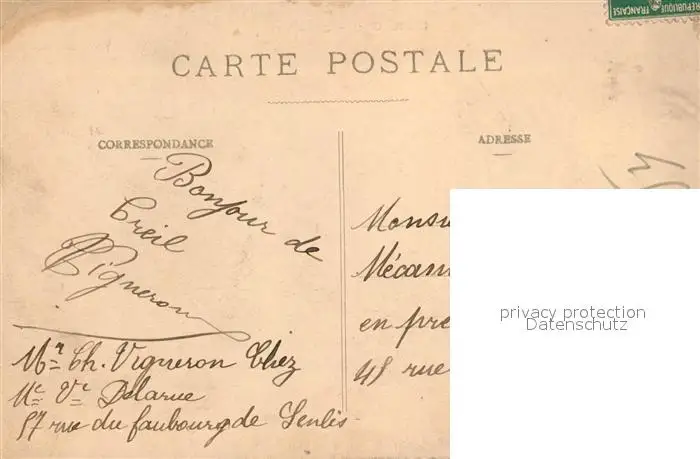 RÉPUBLIQUE FRANÇAISE
CARTE POSTALE
CORRESPONDANCE
ADRESSE
Bonjour de
Creil
Vigneron
Mr Ch. Vigneron Chez
Me Ve Delarue
57 rue du faubourg de Senlis
Monsi
Mécani
en pre
45 rue
privacy protection
Datenschutz